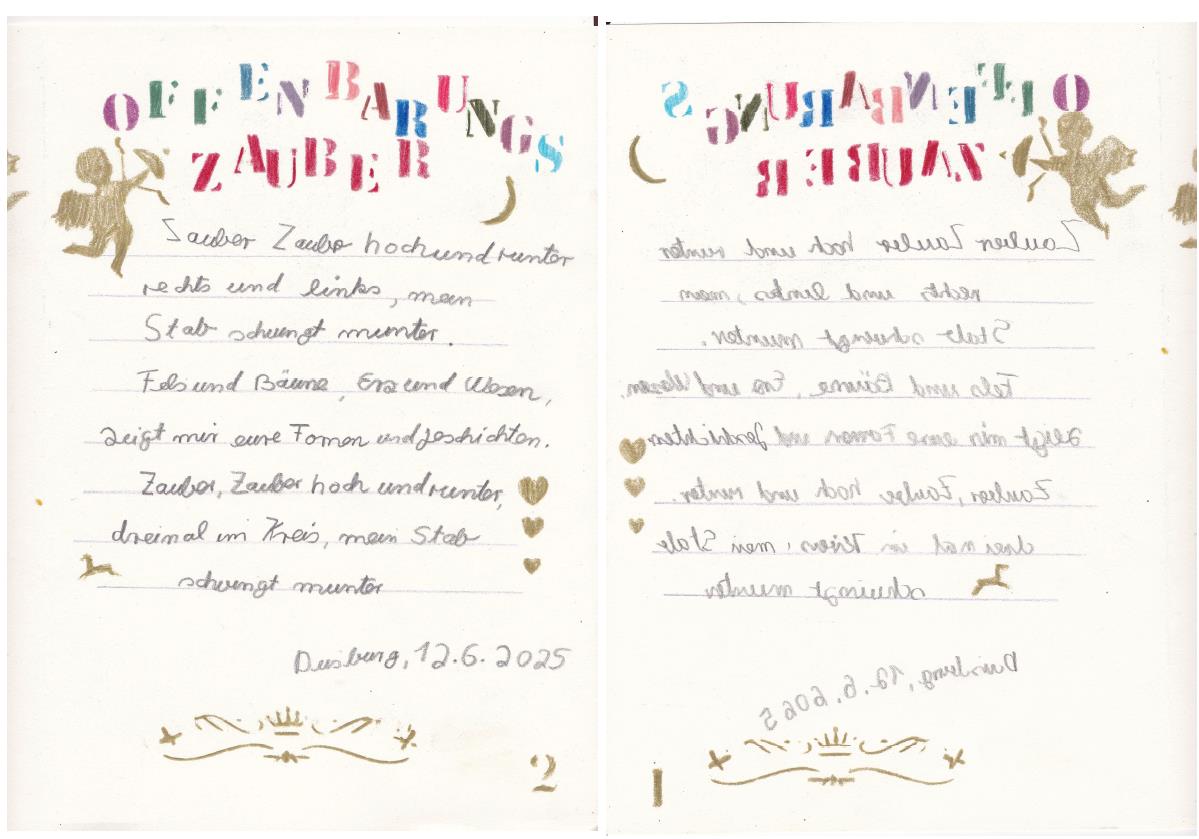 OFFENBARUNGS
ZAUBER
Zauber Zauber hoch und runter
rechts und links, mein
Stab schwingt munter.
Fels und Bäume, Erz und Wesen,
zeigt mir eure Formen und Geschichten.
Zauber, Zauber hoch und runter,
dreimal im Kreis, mein Stab
schwingt munter
Duisburg, 12.6.2025
2
OFFENBARUNGS
ZAUBER
Zauber Zauber hoch und runter
rechts und links, mein
Stab schwingt munter.
Fels und Bäume, Erz und Wesen,
zeigt mir eure Formen und Geschichten
Zauber, Zauber hoch und runter.
dreimal im Kreis, mein Stab
schwingt munter
Duisburg, 12.6.6065
1